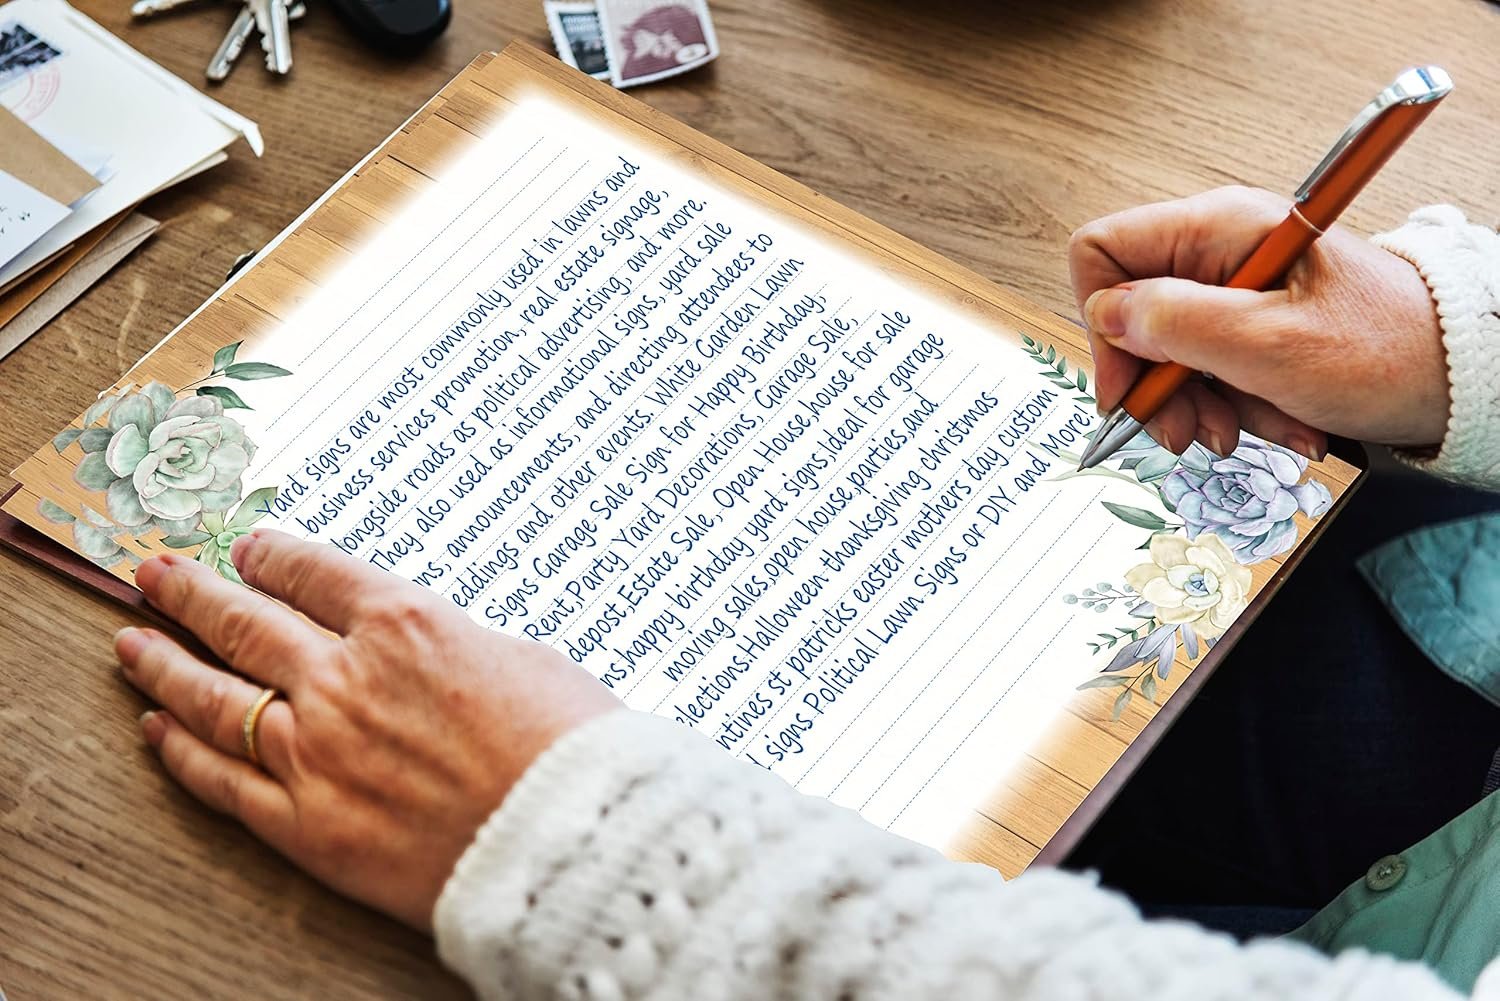 Yard signs are most commonly used in lawns and
business services promotion, real estate signage,
alongside roads as political advertising, and more.
They also used as informational signs, yard sale
announcements, and directing attendees to
weddings and other events. White Garden Lawn
Signs Garage Sale Sign for Happy Birthday,
Rent,Party Yard Decorations, Garage Sale,
depost,Estate Sale, Open House,house for sale
happy birthday yard signs,Ideal for garage
moving sales,open house,parties,and
elections.Halloween thanksgiving christmas
st patricks easter mothers day custom
signs Political Lawn Signs or DIY and More!